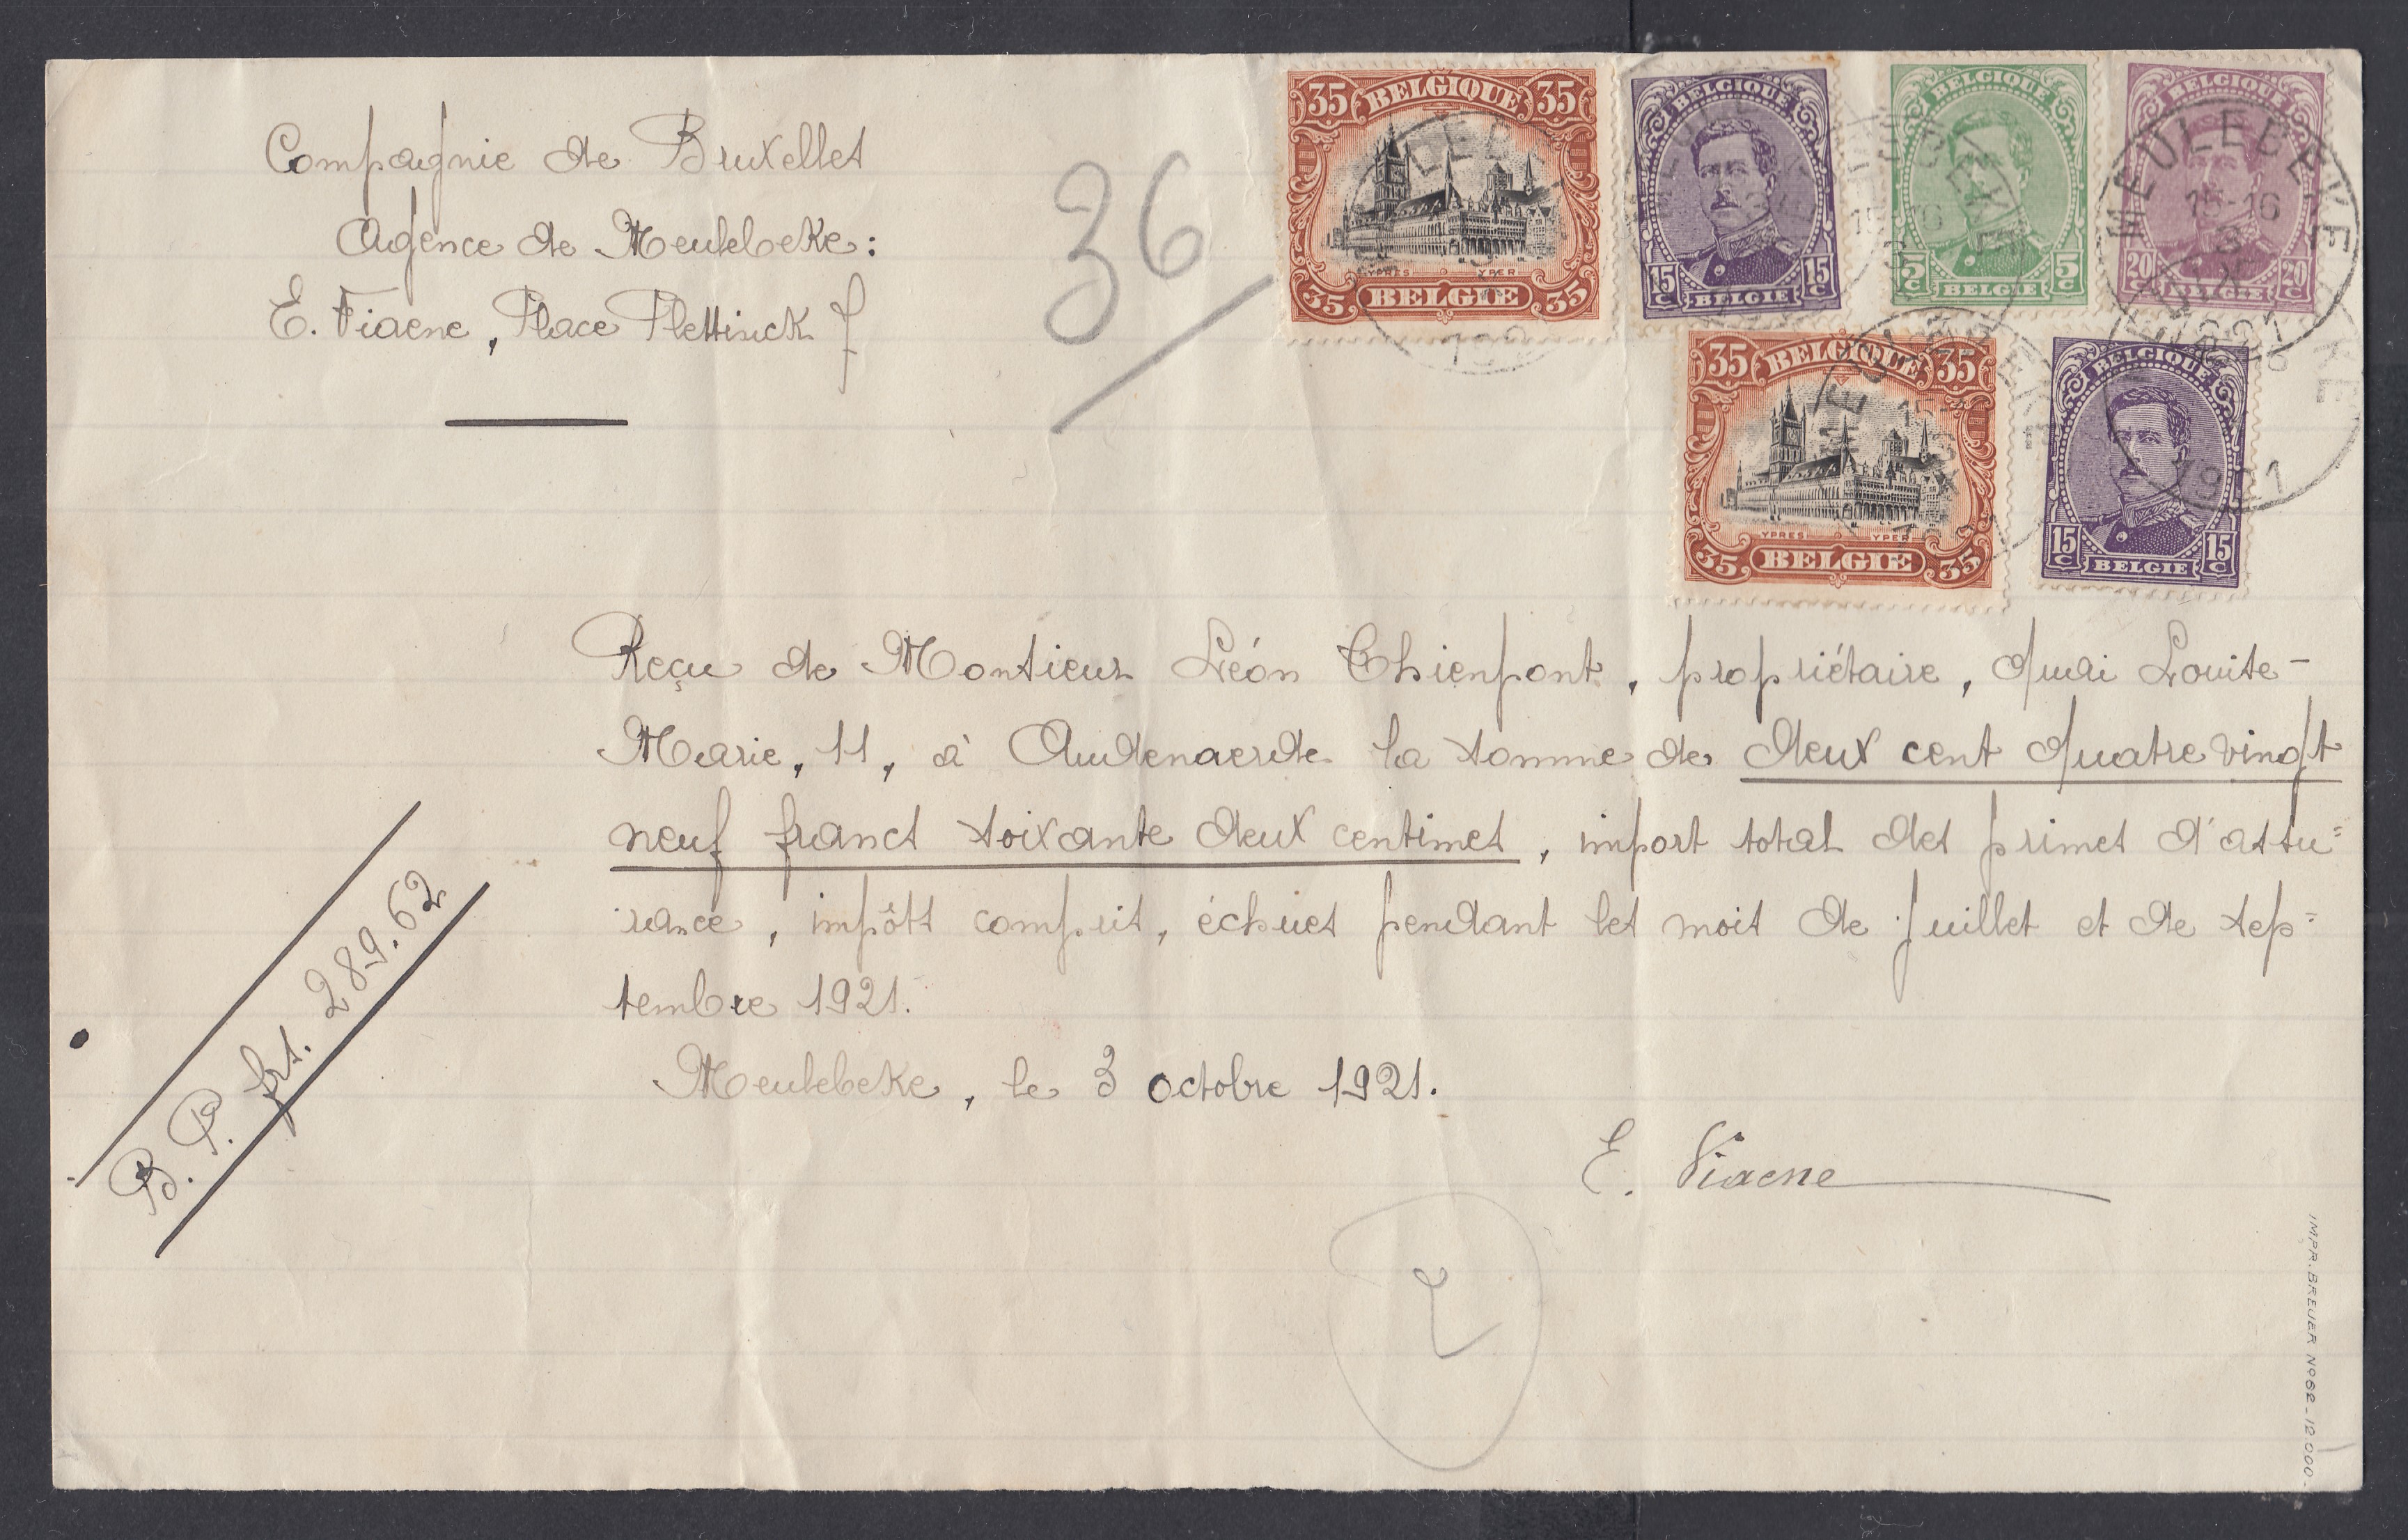 Compagnie de Bruxelles
Agence de Meulebeke:
E. Viaene, Place Plettinck 7
36
35 BELGIQUE 35
YPRES YPER
35 BELGIE 35
BELGIQUE
15 C BELGIE 15 C
BELGIQUE
5 C BELGIE 5 C
BELGIQUE
20 C BELGIE 20 C
MEULEBEKE
15-16
35 BELGIQUE 35
YPRES YPER
35 BELGIE 35
BELGIQUE
15 C BELGIE 15 C
1921
Reçu de Monsieur Léon Thienpont, propriétaire, Quai Louise-
Marie, 11, à Audenaerde la somme de deux cent quatre vingt
neuf francs soixante deux centimes, import total des primes d'assu=
rance, impôts compris, échues pendant les mois de juillet et de sep=
tembre 1921.
Meulebeke, le 3 octobre 1921.
E. Viaene
B. P. frs. 289.62
2
IMPR. BREUER Nº 62 - 12.000.